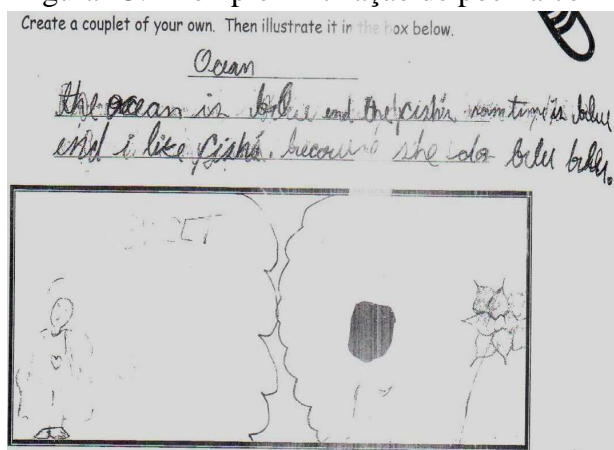 Create a couplet of your own. Then illustrate it in the box below.
Ocean
the ocean is blue end the fishis somtime is blue
end i like fishis. because she do blu blu.